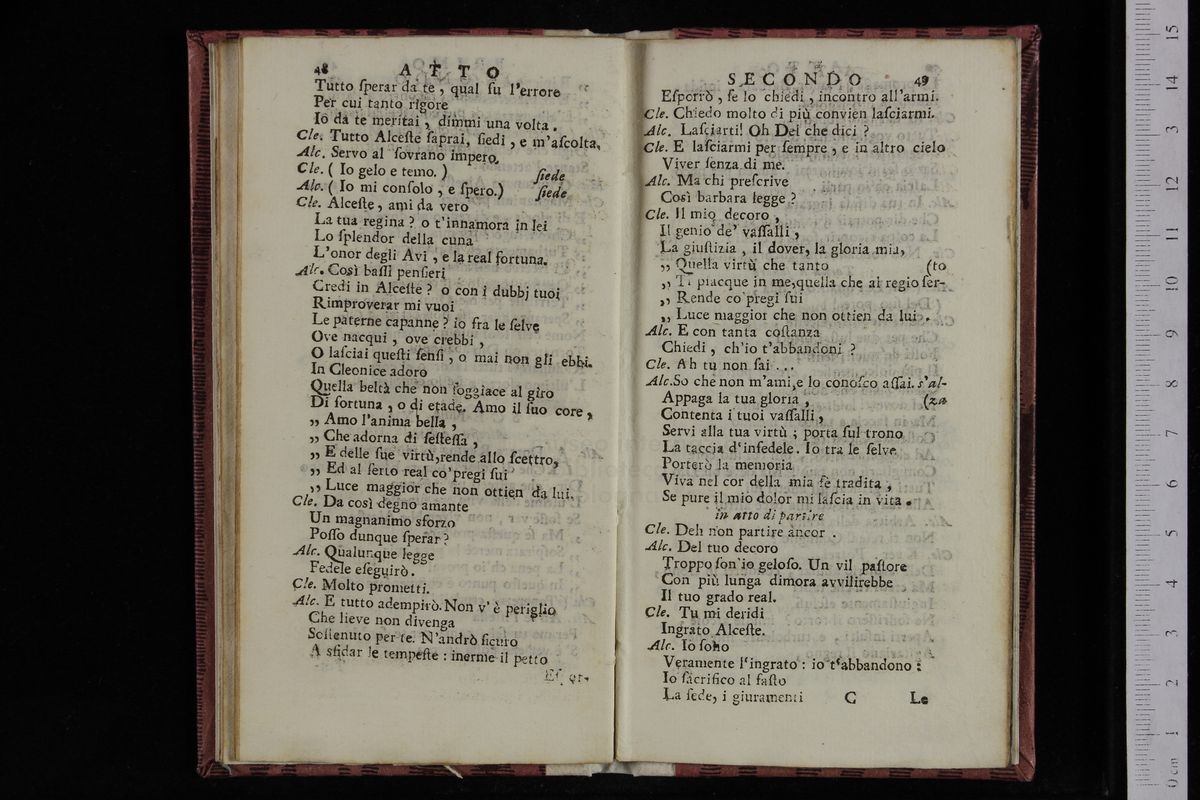 48 ATTO
Tutto ſperar da te, qual fu l'errore
Per cui tanto rigore
Io da te meritai, dimmi una volta.
Cle. Tutto Alceſte ſaprai, ſiedi, e m'aſcolta.
Alc. Servo al ſovrano impero.
Cle. ( Io gelo e temo. ) ſiede
Alc. ( Io mi conſolo, e ſpero.) ſiede
Cle. Alceſte, ami da vero
La tua regina? o t'innamora in lei
Lo ſplendor della cuna
L'onor degli Avi, e la real fortuna.
Alc. Così baſſi penſieri
Credi in Alceſte? o con i dubbj tuoi
Rimproverar mi vuoi
Le paterne capanne? io fra le ſelve
Ove nacqui, ove crebbi,
O laſciai queſti ſenſi, o mai non gli ebbi.
In Cleonice adoro
Quella beltà che non ſoggiace al giro
Di fortuna, o di etade. Amo il ſuo core,
,, Amo l'anima bella,
,, Che adorna di ſeſteſſa,
,, E delle ſue virtù, rende allo ſcettro,
,, Ed al ſerto real co'pregi ſui
,, Luce maggior che non ottien da lui.
Cle. Da così degno amante
Un magnanimo sforzo
Poſſo dunque ſperar?
Alc. Qualunque legge
Fedele eſeguirò.
Cle. Molto prometti.
Alc. E tutto adempirò. Non v' è periglio
Che lieve non divenga
Soſtenuto per te. N'andrò ſicuro
A sfidar le tempeſte : inerme il petto
SECONDO 49
Eſporrò, ſe lo chiedi, incontro all'armi.
Cle. Chiedo molto di più convien laſciarmi.
Alc. Laſciarti! Oh Dei che dici ?
Cle. E laſciarmi per ſempre, e in altro cielo
Viver ſenza di me.
Alc. Ma chi preſcrive
Così barbara legge ?
Cle. Il mio decoro,
Il genio de' vaſſalli,
La giuſtizia, il dover, la gloria mia,
,, Quella virtù che tanto (to
,, Ti piacque in me, quella che al regio ſer-
,, Rende co'pregi ſui
,, Luce maggior che non ottien da lui.
Alc. E con tanta coſtanza
Chiedi, ch'io t'abbandoni ?
Cle. Ah tu non ſai ...
Alc. So che non m'ami, e lo conoſco aſſai. s'al-
Appaga la tua gloria, (za
Contenta i tuoi vaſſalli,
Servi alla tua virtù ; porta ſul trono
La taccia d'infedele. Io tra le ſelve
Porterò la memoria
Viva nel cor della mia fè tradita,
Se pure il mio dolor mi laſcia in vita.
in atto di partire
Cle. Deh non partire ancor .
Alc. Del tuo decoro
Troppo ſon'io geloſo. Un vil paſtore
Con più lunga dimora avvilirebbe
Il tuo grado real.
Cle. Tu mi deridi
Ingrato Alceſte.
Alc. Io ſono
Veramente l'ingrato : io t'abbandono :
Io ſacrifico al faſto
La fede, i giuramenti C Le